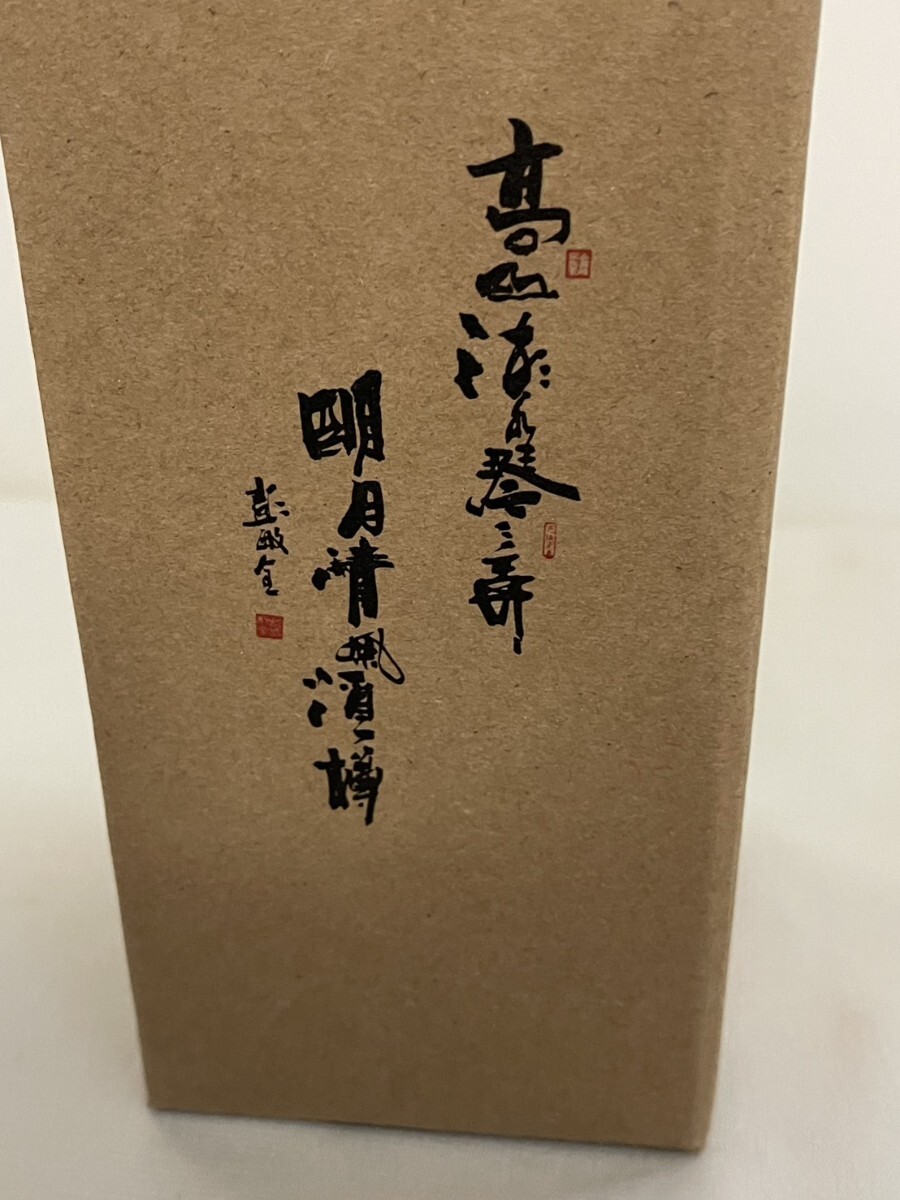 高山流水琴三弄
明月清風酒一樽
彭敏全